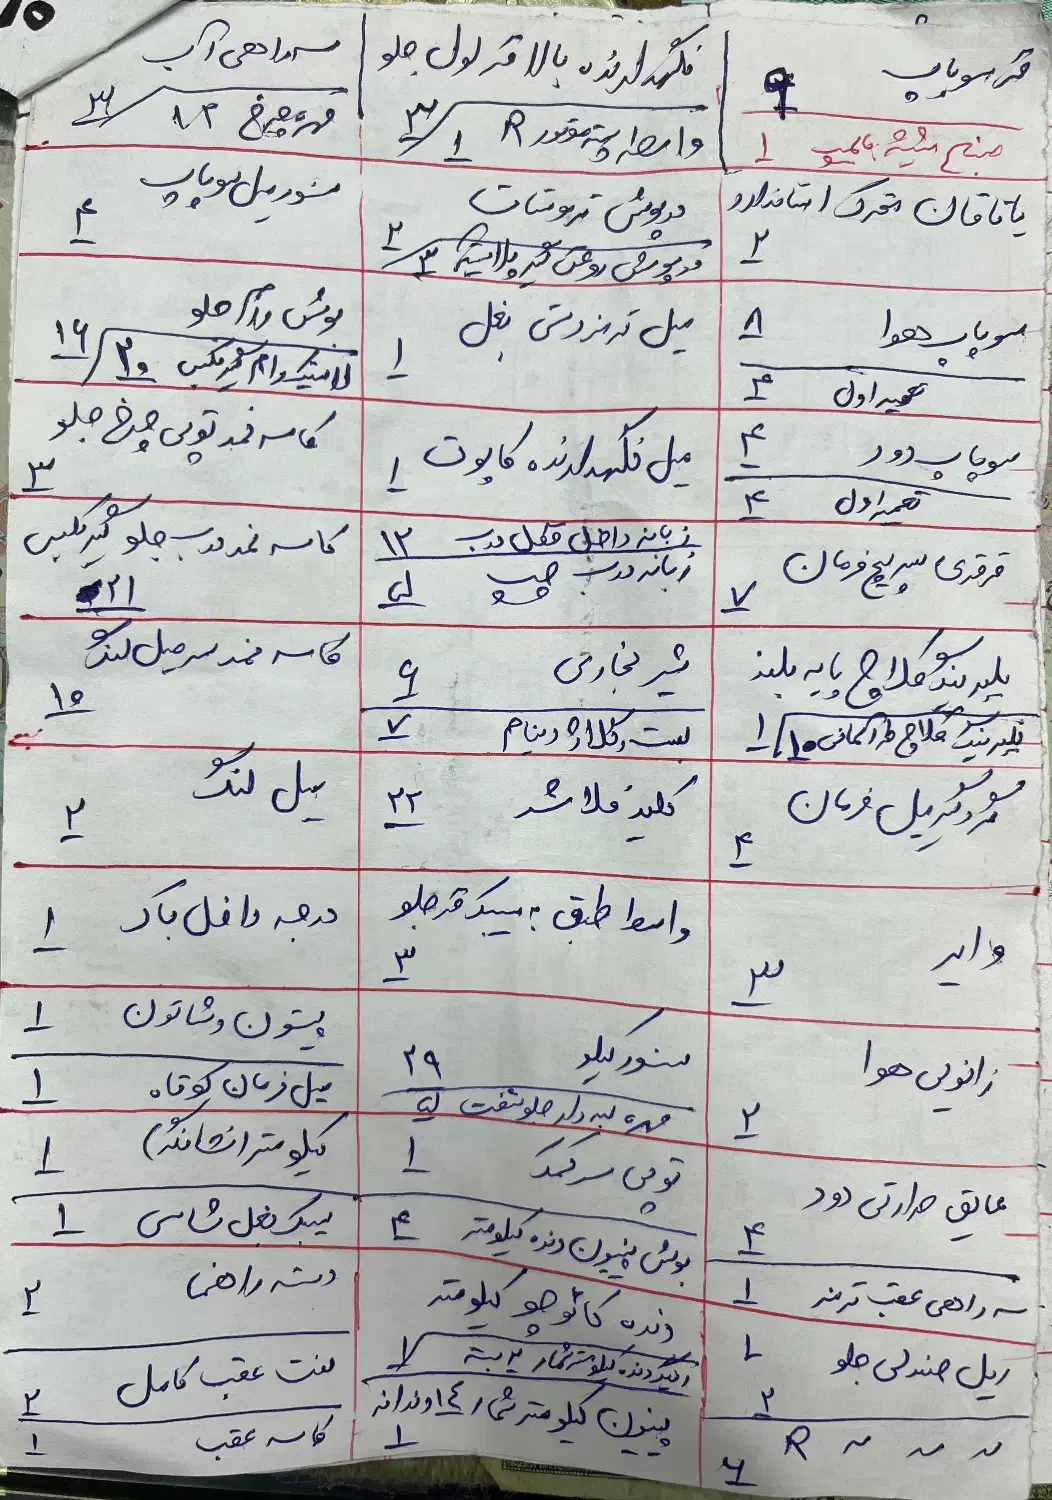 فنر سوپاپ ۹
منبع شیشه ۱
یاتاقان متحرک استاندارد ۲
سوپاپ هوا ۸
تعمیر اول ۴
سوپاپ دود ۴
تعمیر اول ۴
قرقری سرپیچ فرمان ۷
بلبرینگ کلاچ پایه بلند ۱
بلبرینگ کلاچ ۱۰
گردگیر میل فرمان ۴
وایر ۳
زانویی هوا ۲
عایق حرارتی دود ۴
سه راهی عقب ترمز ۱
ریل صندلی جلو L ۲
R ۶
نگهدارنده بالا فنر لول جلو ۳
واسطه R ۱
درپوش ترموستات ۲
درپوش روغن گیر ۳
میل ترمزدستی بغل ۱
میل نگهدارنده کاپوت ۱
زبانه داخل قفل درب ۱۲
زبانه درب چپ
شیر بخاری ۶
بست دینام ۷
کلید فلاشر ۲۲
واسطه طبق به سیبک فنر جلو ۳
سنور کیلو ۲۹
مهره لبه دار جلو
توپی سر کمک ۱
بوش پینیون دنده کیلومتر ۴
دنده کائوچو کیلومتر ۷
دنده کیلومتر شمار
پینیون کیلومتر شمار ۱۴ دندانه ۱
سه راهی آب ۳
مهره چرخ
سنور میل سوپاپ ۴
بوش رام جلو ۱۶
لاستیک رام گیربکس ۳۰
کاسه نمد توپی چرخ جلو ۳
کاسه نمد درب جلو گیربکس ۲۱
کاسه نمد سر میل لنگ ۱۰
میل لنگ ۲
درجه داخل باک ۱
پیستون و شاتون ۱
میل فرمان کوتاه ۱
کیلومتر (نشانگر) ۱
سیبک بغل شاسی ۱
دسته راهنما ۲
لنت عقب کامل ۲
کاسه عقب ۱